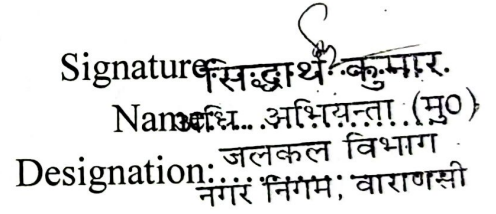 Signature: सिद्धार्थ कुमार
Name: अधि. अभियन्ता (मु०)
Designation: जलकल विभाग
नगर निगम, वाराणसी